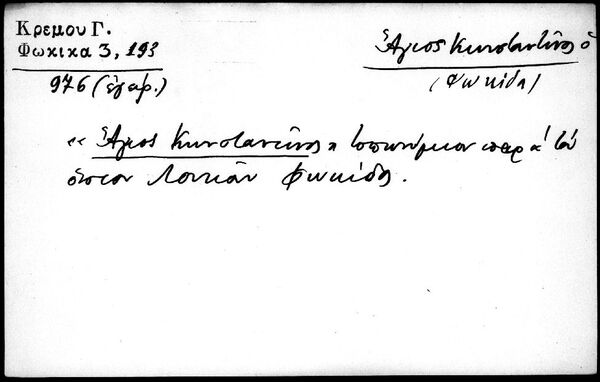 Κρεμου Γ.
Φωκικα 3, 193
976 (ἔγγρ.)
Ἅγιος Κωνσταντῖνος ὁ
(Φωκίδα)
« Ἅγιος Κωνσταντῖνος » τοπωνύμιον παρὰ τὸν
ὅσιον Λουκᾶν Φωκίδος.